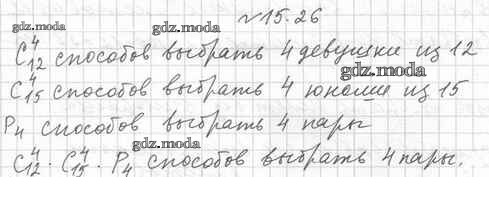 №15.26
gdz.moda
gdz.moda
C⁴₁₂ способов выбрать 4 девушки из 12
gdz.moda
C⁴₁₅ способов выбрать 4 юноши из 15
P₄ способов выбрать 4 пары
gdz.moda
C⁴₁₂ · C⁴₁₅ · P₄ способов выбрать 4 пары.